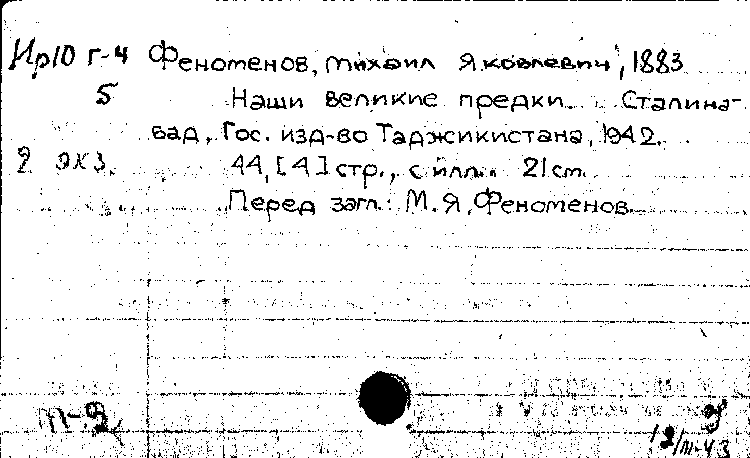 Ир10 г-4 Феноменов, Михаил Яковлевич, 1883
5 Наши великие предки. Сталина-
бад, Гос. изд-во Таджикистана, 1942.
2 экз. 44, [4] стр., с илл. 21 см.
Перед загл.: М. Я. Феноменов.